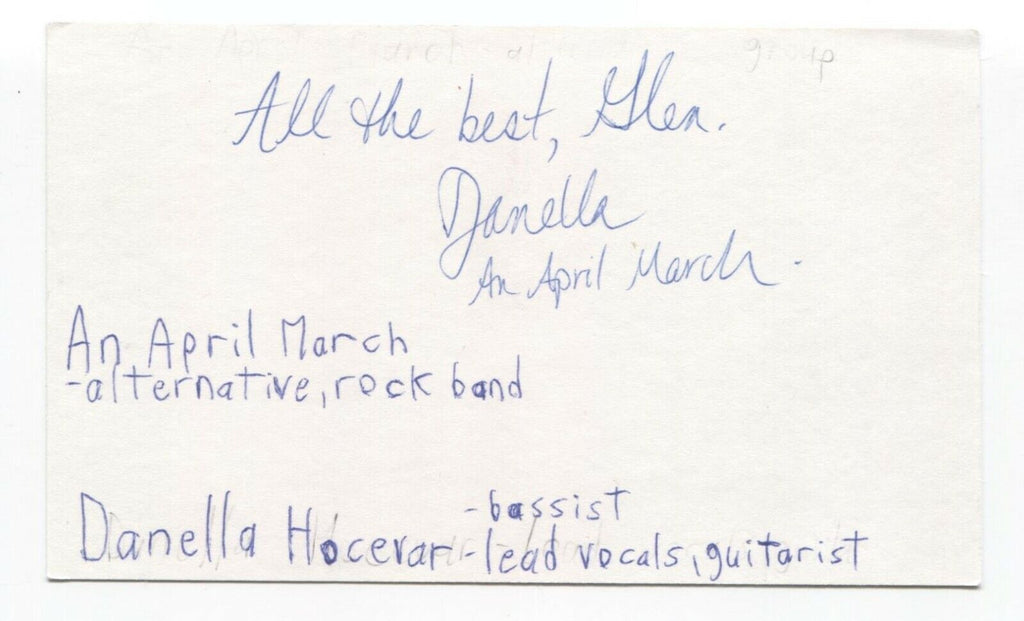 An April March al group
All the best, Glen.
Danella
An April March.
An April March
-alternative, rock band
-bassist
Danella Hocevar -lead vocals, guitarist